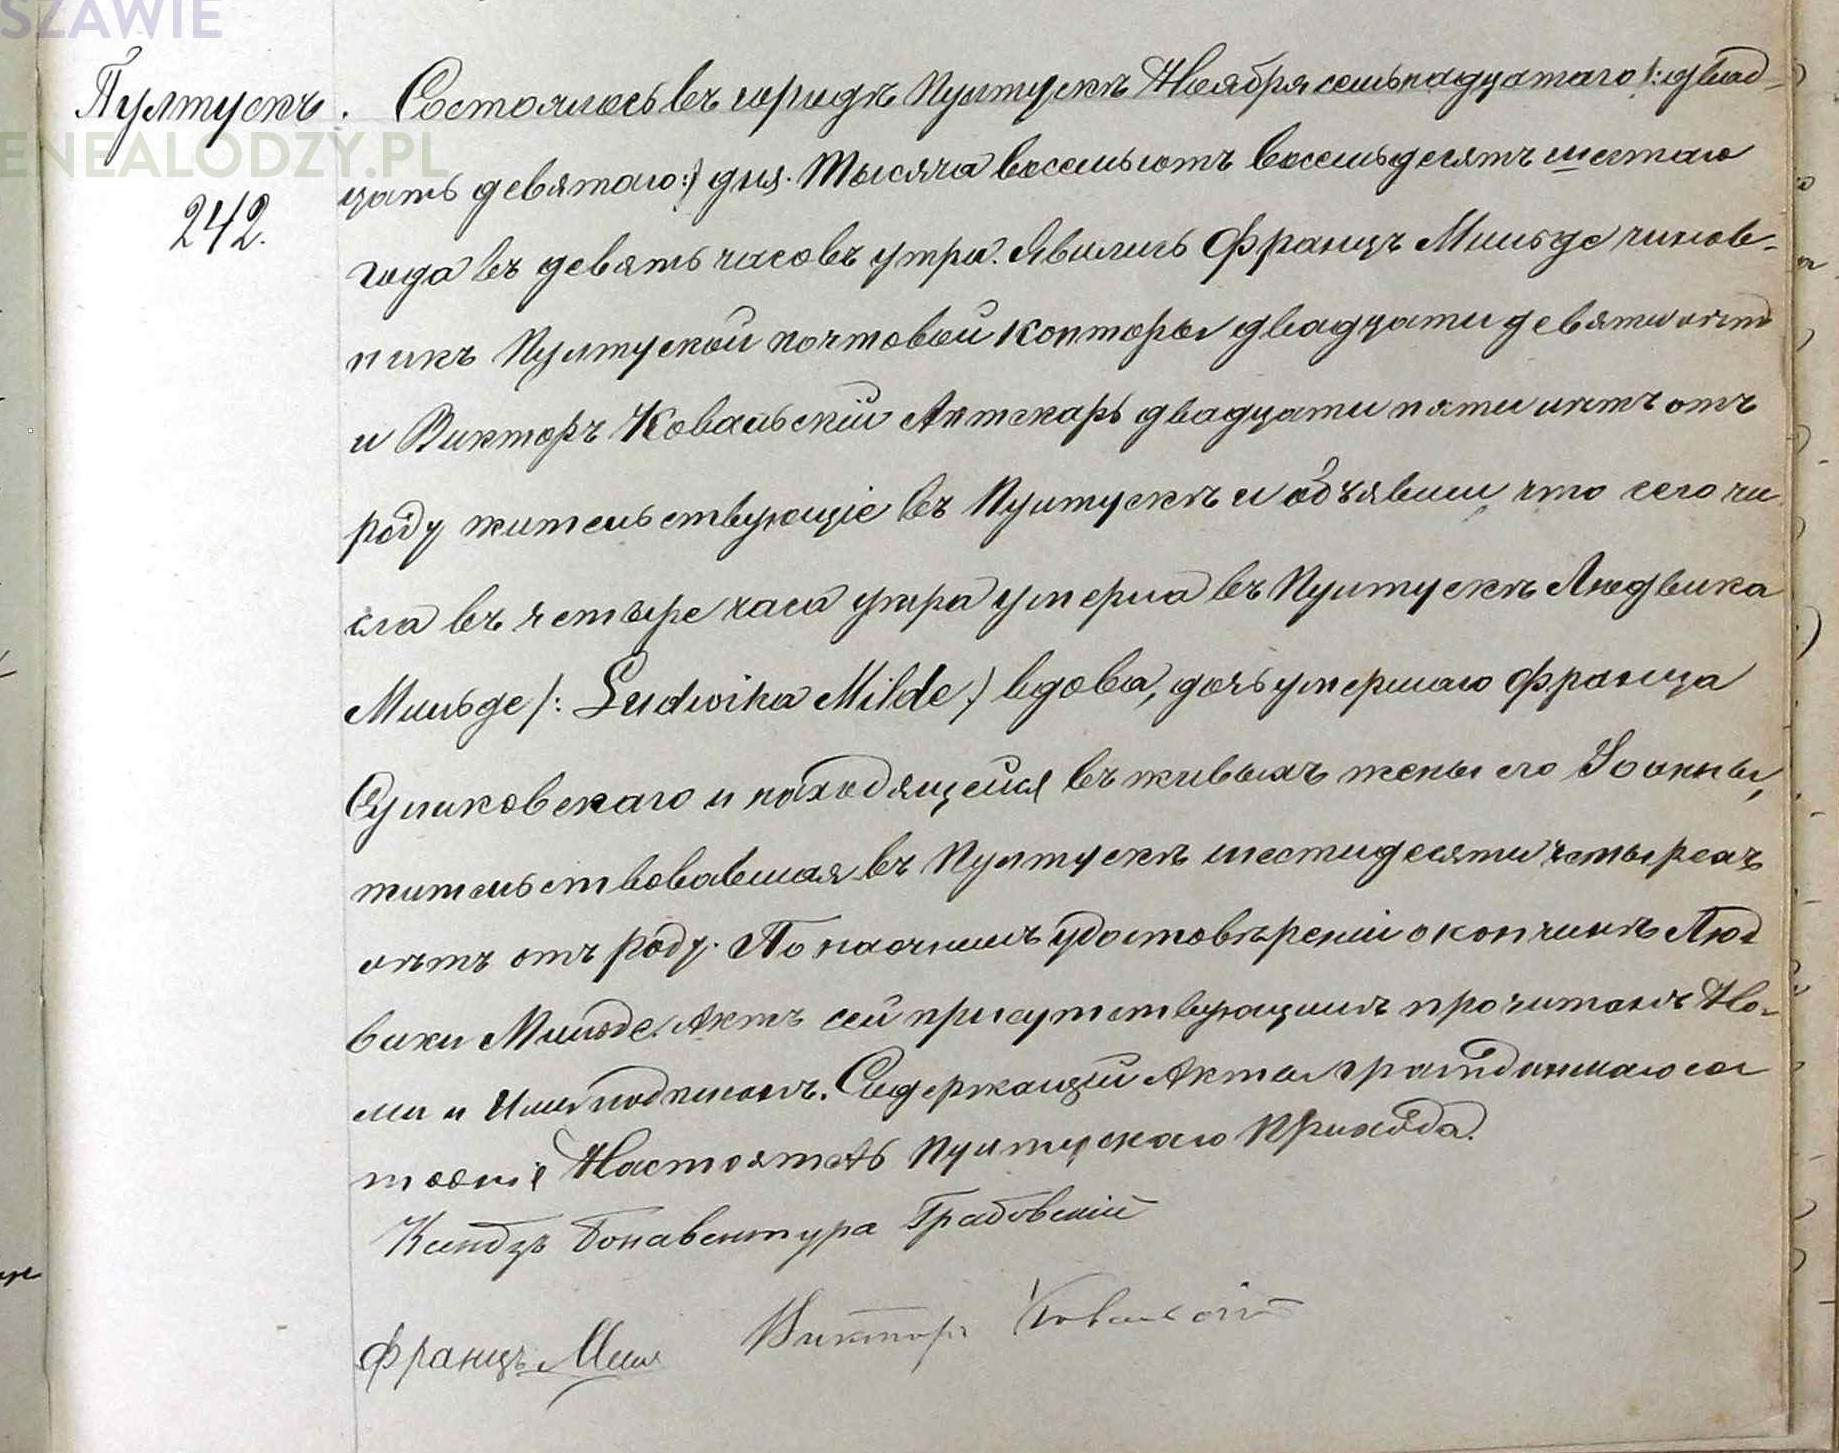 SZAWIE
ENEALODZY.PL
Пултускъ.
242.
Состоялось въ городѣ Пултускѣ Ноября семьнадцатаго /: двад-
цать девятаго :/ дня. Тысяча восемьсотъ восемьдесятъ шестаго
года въ девять часовъ утра. Явились Францъ Мильде чинов-
никъ Пултуской почтовой конторы двадцати девяти лѣтъ
и Викторъ Ковальскій Аптекарь двадцати пяти лѣтъ отъ
роду жительствующіе въ Пултускѣ и объявили что сего чи
сла въ четыре часа утра умерла въ Пултускѣ Людвика
Мильде /: Ludwika Milde :/ вдова, дочь умершаго Франца
и находящейся въ живыхъ жены его Іоанны,
жительствовавшая въ Пултускѣ шестидесяти четырехъ
лѣтъ отъ роду. По наочномъ удостовѣреніи о кончинѣ Люд
вики Мильде. Актъ сей присутствующимъ прочитанъ На-
ми и Ими подписанъ. Содержащій Акты гражданскаго со
стоянія Настоятель Пултускаго Прихода.
Ксендзъ Бонавентура Грабовскій
Францъ Миль Викторъ Ковальскій